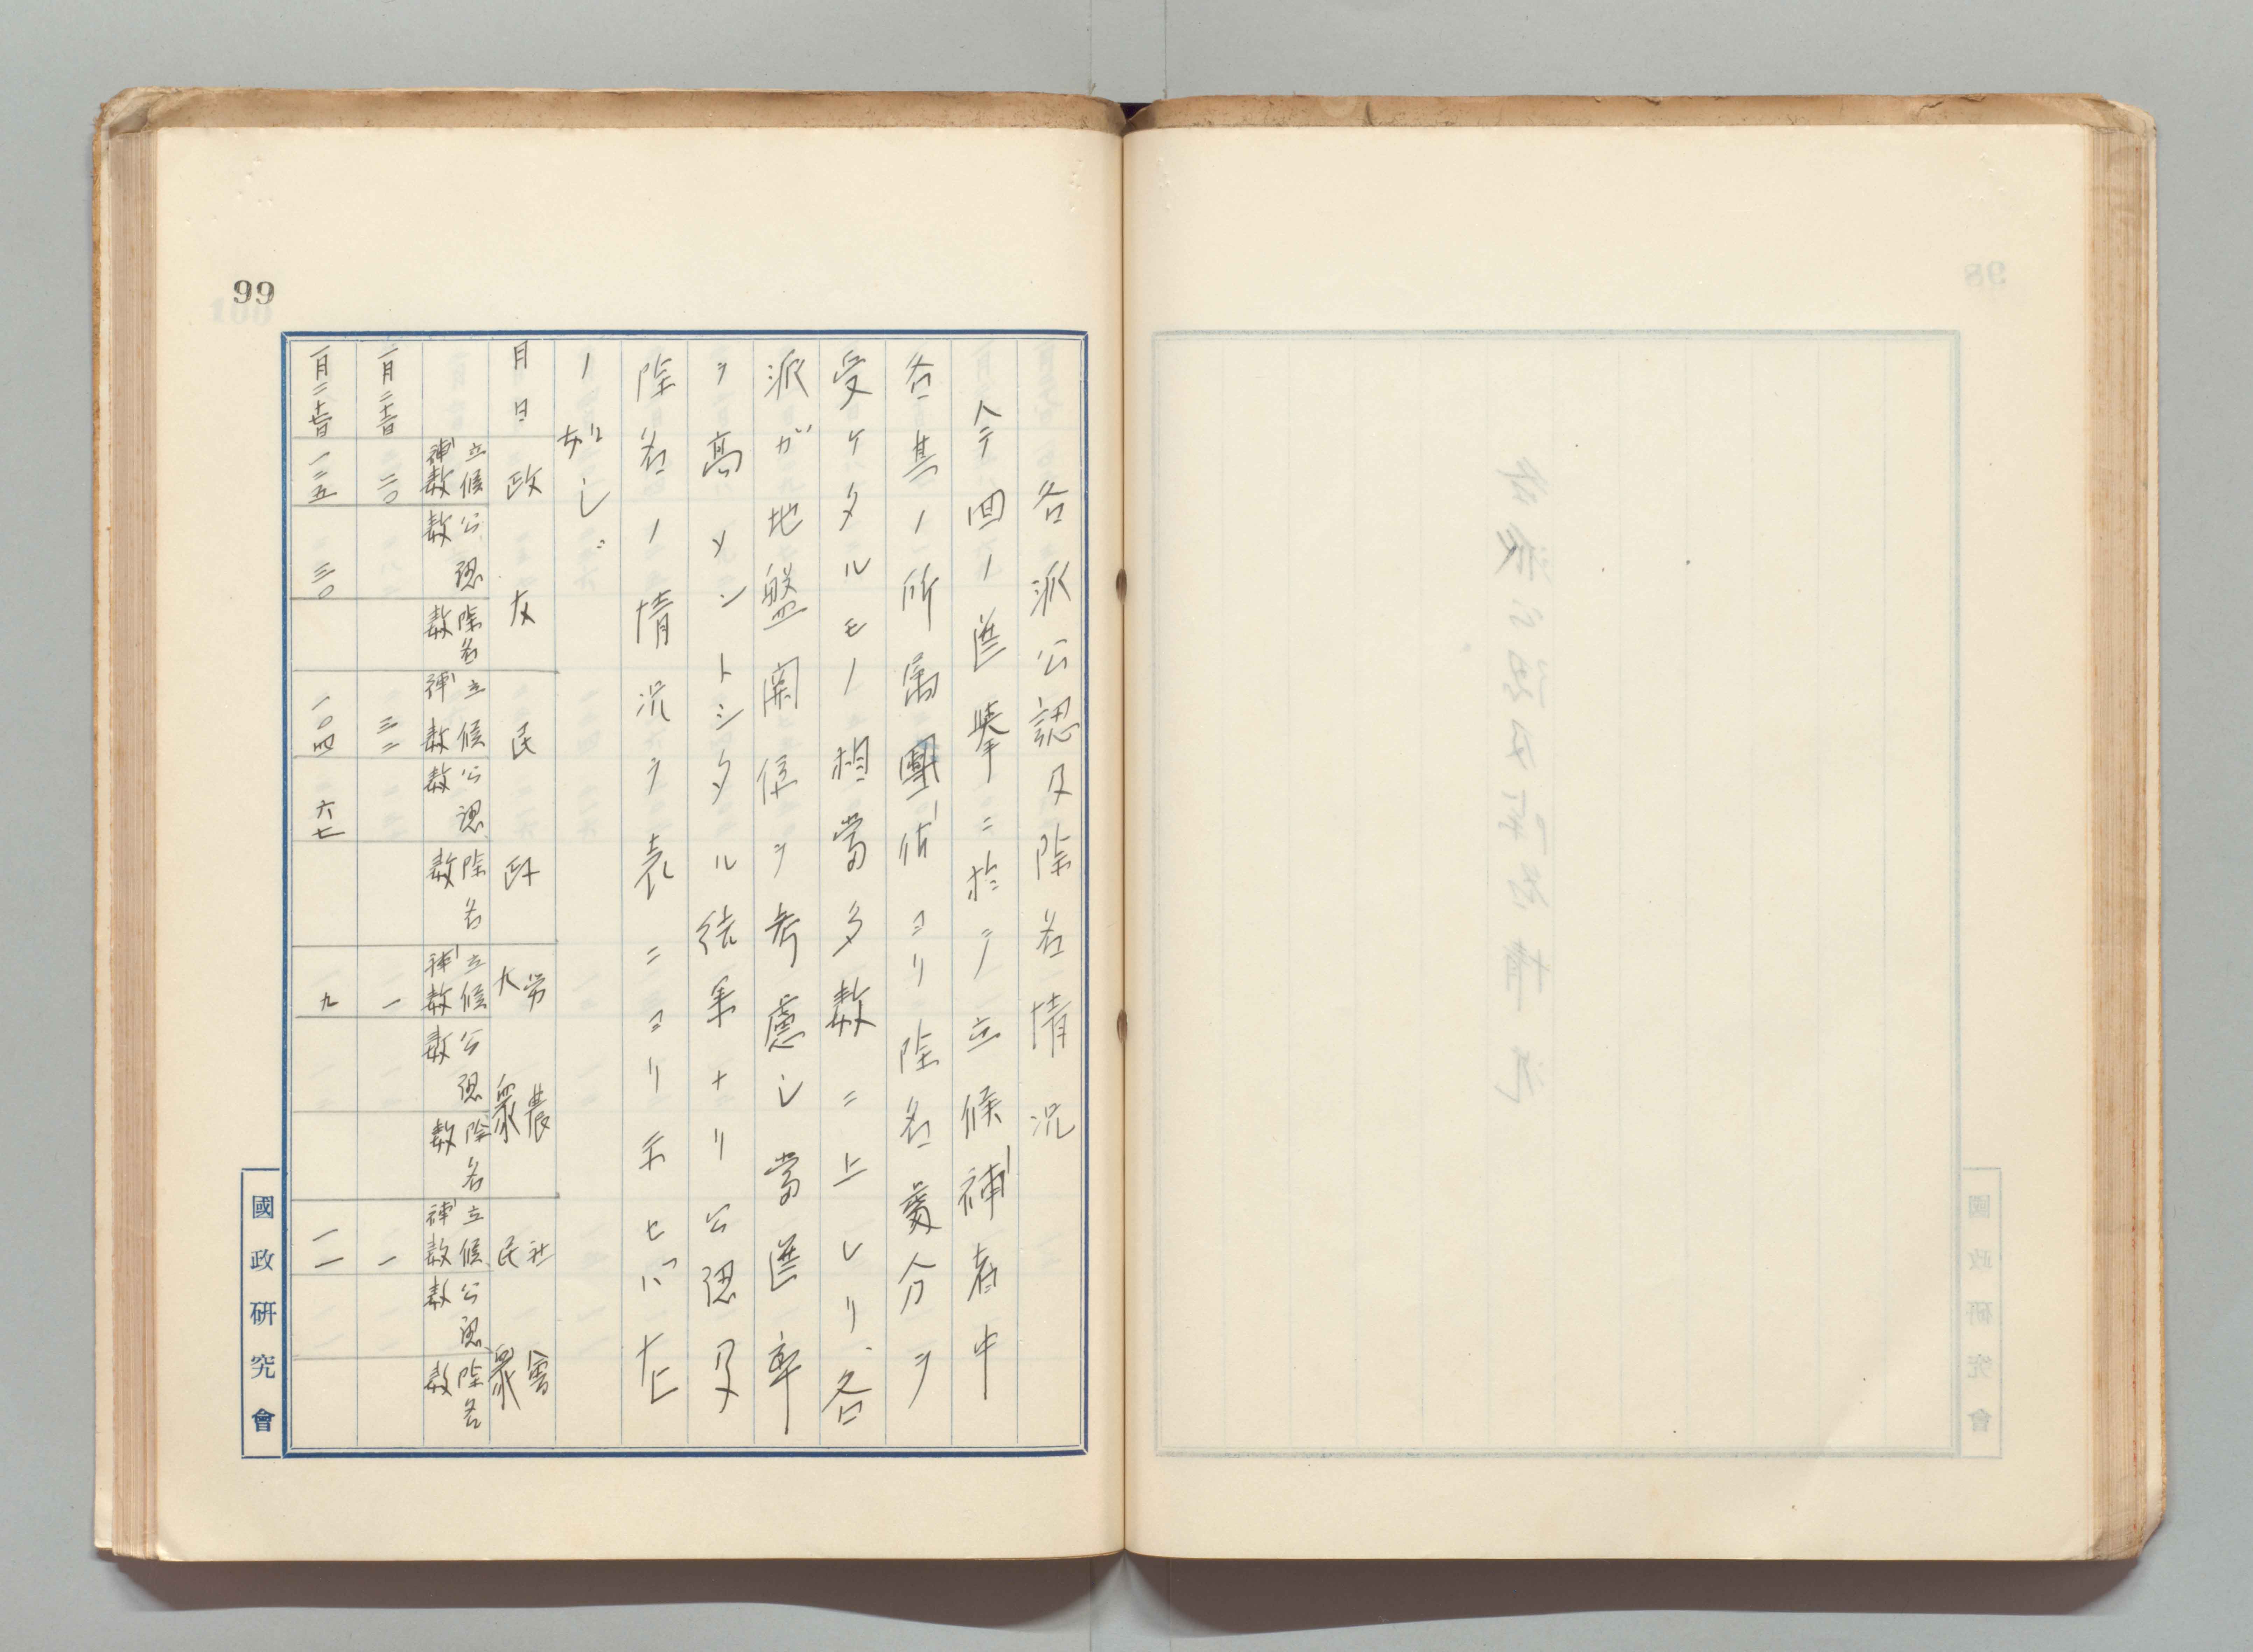 各派公認及除名情況
今回ノ選挙ニ於テノ立候補者中
各其ノ所属團体ヨリ除名処分ヲ
受ケタルモノ相當多数ニ上レリ、各
派ガ地盤関係ヲ考慮シ當選率
ヲ高メントシタル結果ナリ公認及
除名ノ情況ヲ表ニヨリ示セバ左
ノ如シ
月日 政友 民政 労農大衆 社會民衆
立候補数 公認数 除名数 立候補数 公認数 除名数 立候補数 公認数 除名数 立候補数 公認数 除名数
二〇 三二 一 一
一二五 三〇 一〇四 六七 九 一一
99
國政研究會